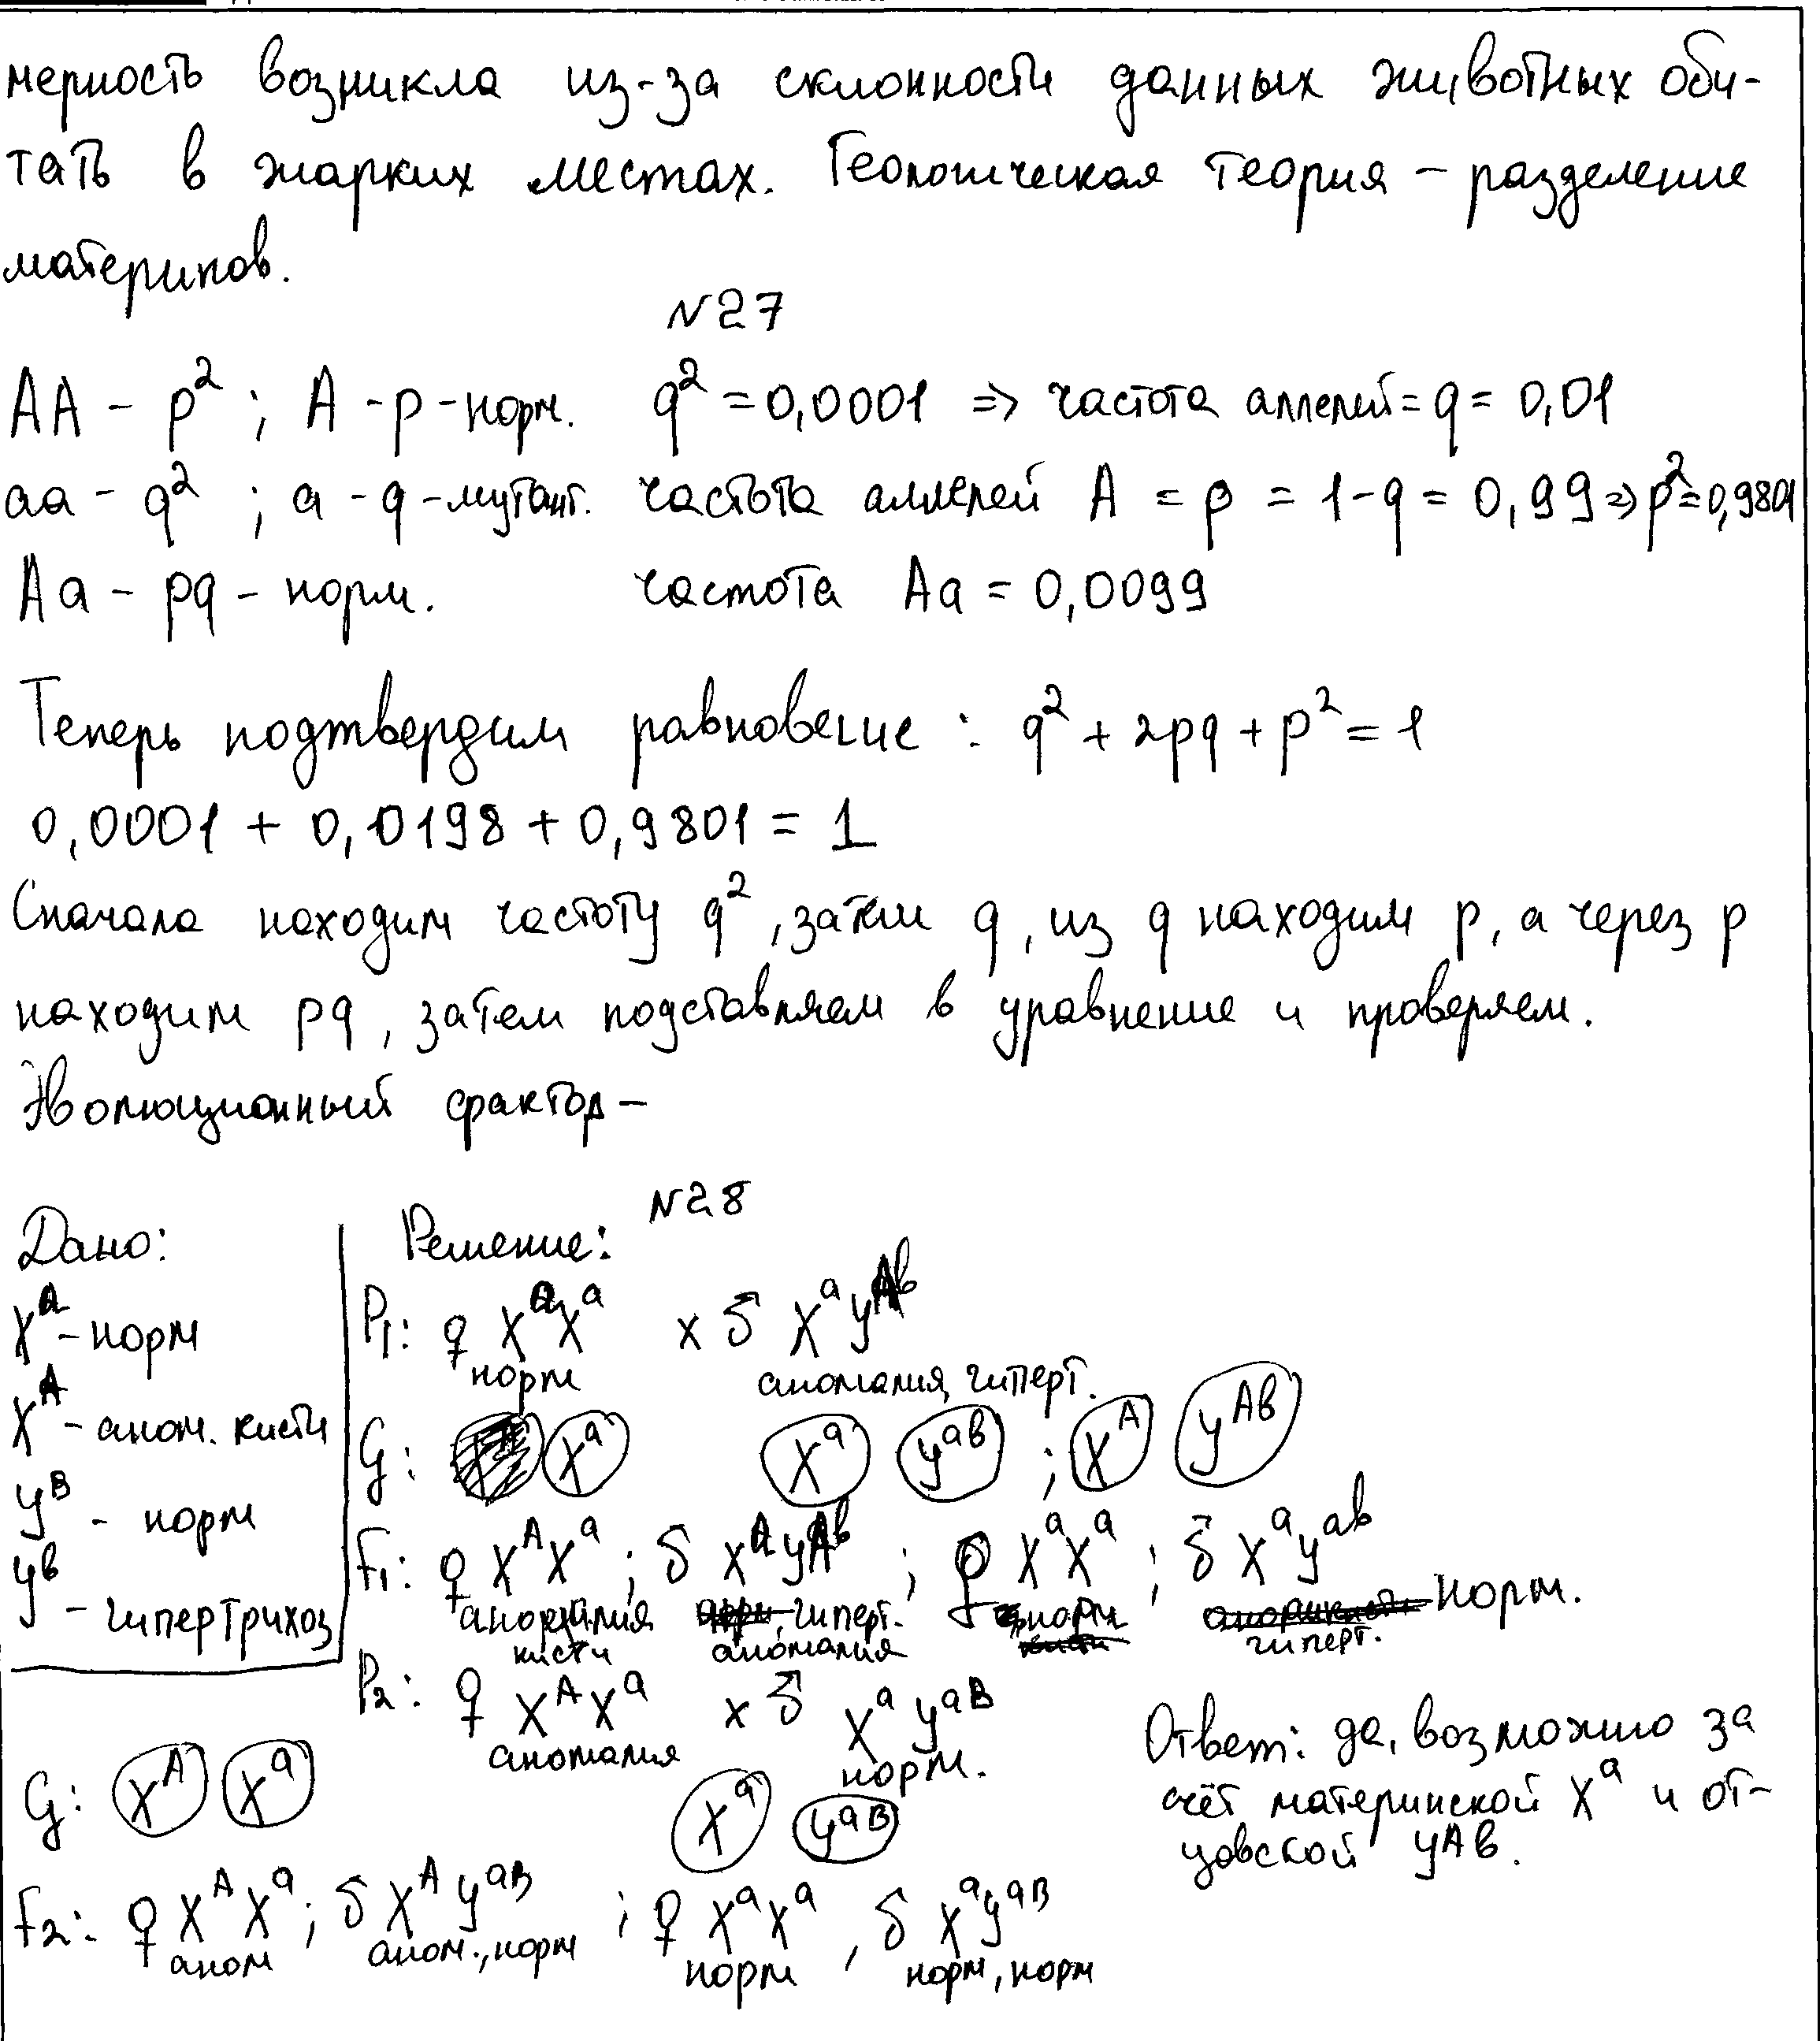 мерность возникла из-за склонности данных животных оби-
тать в жарких местах. Геологическая теория – разделение
материков.
№27
AA – p² ; A – p – норм. q² = 0,0001 => частота аллелей = q = 0,01
aa – q² ; a – q – мутант. частота аллелей A = p = 1-q = 0,99 => p² = 0,9801
Aa – pq – норм. частота Aa = 0,0099
Теперь подтвердим равновесие : q² + 2pq + p² = 1
0,0001 + 0,0198 + 0,9801 = 1
Сначала находим частоту q², затем q, из q находим p, а через p
находим pq, затем подставляем в уравнение и проверяем.
Эволюционный фактор –
№28
Дано: Решение:
Xᵃ – норм
Xᴬ – аном. кисти
Yᴮ – норм
Yᵇ – гипертрихоз
P₁: ♀ XᵃXᵃ x ♂ XᵃYᴬᵇ
норм аномалия, гиперт.
G: Xᵃ Xᵃ Yᵃᵇ ; Xᴬ Yᴬᵇ
F₁: ♀ XᴬXᵃ ; ♂ XᴬYᴬᵇ ; ♀ XᵃXᵃ ; ♂ XᵃYᵃᵇ
аномалия кисти гиперт. аномалия норм норм. гиперт.
P₂: ♀ XᴬXᵃ x ♂ XᵃYᵃᴮ
аномалия норм.
G: Xᴬ Xᵃ Xᵃ Yᵃᴮ
F₂: ♀ XᴬXᵃ ; ♂ XᴬYᵃᴮ ; ♀ XᵃXᵃ , ♂ XᵃYᵃᴮ
аном аном., норм норм норм, норм
Ответ: да, возможно за
счёт материнской Xᵃ и от-
цовской YAb.